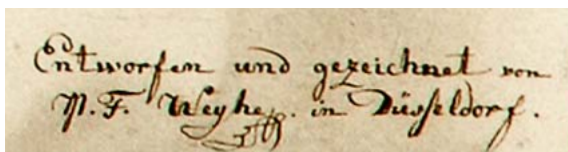 Entworfen und gezeichnet von
M. F. Weyhe. in Düsseldorf.